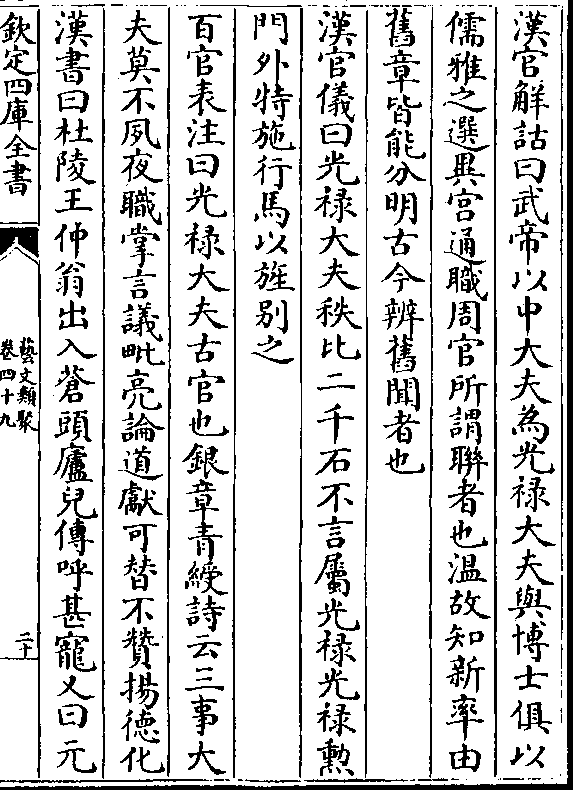 漢官解詁曰武帝以中大夫為光禄大夫與博士俱以
儒雅之選異官通職周官所謂聯者也温故知新率由
舊章皆能分明古今辨舊聞者也
漢官儀曰光禄大夫秩比二千石不言屬光禄光禄勲
門外特施行馬以旌别之
百官表注曰光禄大夫古官也銀章青綬詩云三事大
夫莫不夙夜職掌言議毗亮論道獻可替不贊揚徳化
漢書曰杜陵王仲翁出入蒼頭廬兒傳呼甚寵又曰元
欽定四庫全書
藝文類聚
卷四十九
二十